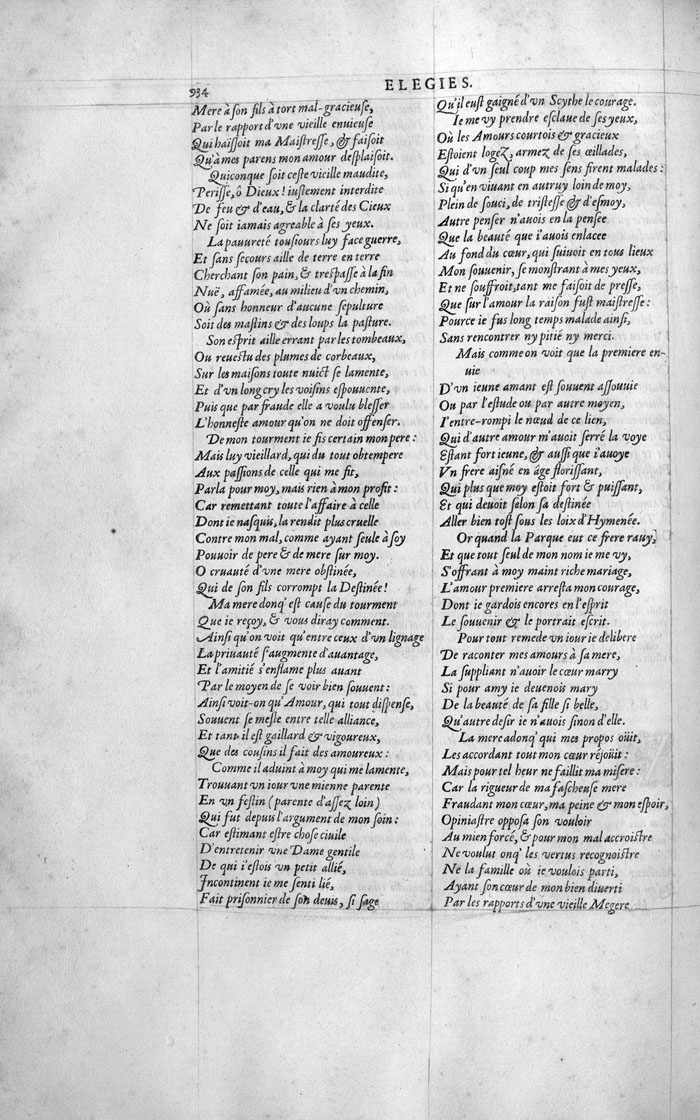 934
ELEGIES.
Mere à son fils à tort mal-gracieuse,
Par le rapport d'vne vieille enuieuse
Qui haïssoit ma Maistresse, & faisoit
Qu'à mes parens mon amour desplaisoit.
Quiconque soit ceste vieille maudite,
Perisse, ô Dieux! iustement interdite
De feu & d'eau, & la clarté des Cieux
Ne soit iamais agreable à ses yeux.
La pauureté tousiours luy face guerre,
Et sans secours aille de terre en terre
Cherchant son pain, & trespasse à la fin
Nuë, affamée, au milieu d'vn chemin,
Où sans honneur d'aucune sepulture
Soit des mastins & des loups la pasture.
Son esprit aille errant par les tombeaux,
Ou reuestu des plumes de corbeaux,
Sur les maisons toute nuict se lamente,
Et d'vn long cry les voisins espouuente,
Puis que par fraude elle a voulu blesser
L'honneste amour qu'on ne doit offenser.
De mon tourment ie fis certain mon pere:
Mais luy vieillard, qui du tout obtempere
Aux passions de celle qui me fit,
Parla pour moy, mais rien à mon profit:
Car remettant toute l'affaire à celle
Dont ie nasquis, la rendit plus cruelle
Contre mon mal, comme ayant seule à soy
Pouuoir de pere & de mere sur moy.
O cruauté d'vne mere obstinée,
Qui de son fils corrompt la Destinée!
Ma mere donq' est cause du tourment
Que ie reçoy, & vous diray comment.
Ainsi qu'on voit qu'entre ceux d'vn lignage
La priuauté s'augmente d'auantage,
Et l'amitié s'enflame plus auant
Par le moyen de se voir bien souuent:
Ainsi voit-on qu'Amour, qui tout dispense,
Souuent se mesle entre telle alliance,
Et tant il est gaillard & vigoureux,
Que des cousins il fait des amoureux:
Comme il aduint à moy qui me lamente,
Trouuant vn iour vne mienne parente
En vn festin (parente d'assez loin)
Qui fut depuis l'argument de mon soin:
Car estimant estre chose ciuile
D'entretenir vne Dame gentile
De qui i'estois vn petit allié,
Incontinent ie me senti lié,
Fait prisonnier de son deuis, si sage
Qu'il eust gaigné d'vn Scythe le courage.
Ie me vy prendre esclaue de ses yeux,
Où les Amours courtois & gracieux
Estoient logez, armez de ses œillades,
Qui d'vn seul coup mes sens firent malades:
Si qu'en viuant en autruy loin de moy,
Plein de souci, de tristesse & d'esmoy,
Autre penser n'auois en la pensee
Que la beauté que i'auois enlacee
Au fond du cœur, qui suiuoit en tous lieux
Mon souuenir, se monstrant à mes yeux,
Et ne souffroit, tant me faisoit de presse,
Que sur l'amour la raison fust maistresse:
Pource ie fus long temps malade ainsi,
Sans rencontrer ny pitié ny merci.
Mais comme on voit que la premiere en-
uie
D'vn ieune amant est souuent assouuie
Ou par l'estude ou par autre moyen,
I'entre-rompi le nœud de ce lien,
Qui d'autre amour m'auoit serré la voye
Estant fort ieune, & aussi que i'auoye
Vn frere aisné en âge florissant,
Qui plus que moy estoit fort & puissant,
Et qui deuoit selon sa destinée
Aller bien tost sous les loix d'Hymenée.
Or quand la Parque eut ce frere rauy,
Et que tout seul de mon nom ie me vy,
S'offrant à moy maint riche mariage,
L'amour premiere arresta mon courage,
Dont ie gardois encores en l'esprit
Le souuenir & le portrait escrit.
Pour tout remede vn iour ie delibere
De raconter mes amours à sa mere,
La suppliant n'auoir le cœur marry
Si pour amy ie deuenois mary
De la beauté de sa fille si belle,
Qu'autre desir ie n'auois sinon d'elle.
La mere adonq' qui mes propos oüit,
Les accordant tout mon cœur réjoüit:
Mais pour tel heur ne faillit ma misere:
Car la rigueur de ma fascheuse mere
Fraudant mon cœur, ma peine & mon espoir,
Opiniastre opposa son vouloir
Au mien forcé, & pour mon mal accroistre
Ne voulut onq' les vertus recognoistre
Ne la famille où ie voulois parti,
Ayant son cœur de mon bien diuerti
Par les rapports d'vne vieille Megere